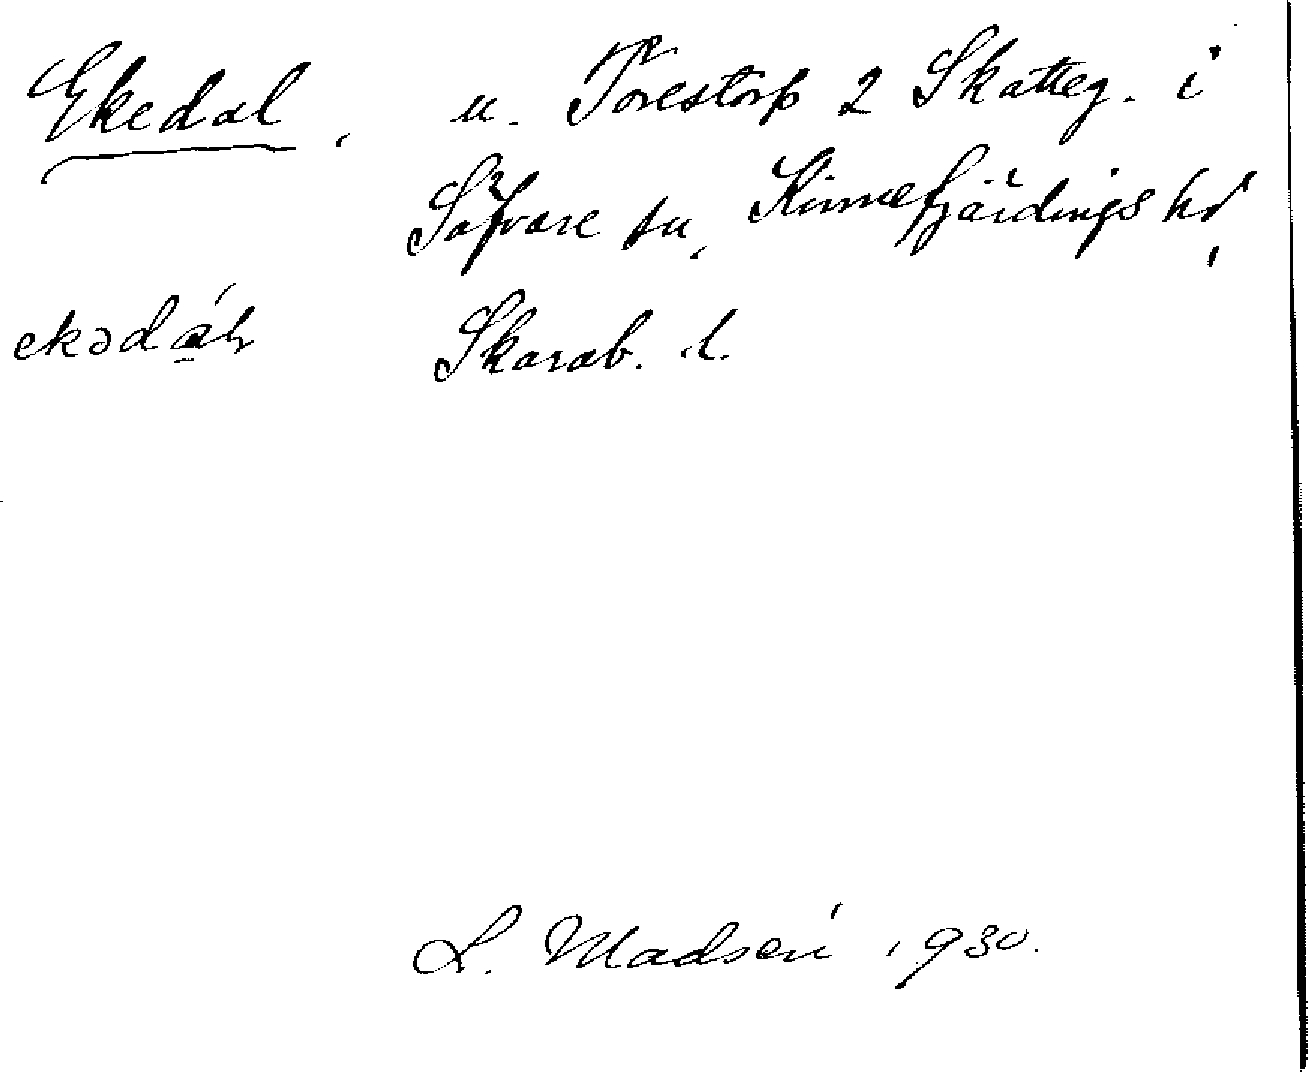 Ekedal, u. Torestorp 2 Skatteg. i
Säfvare sn, Kinnefjärdings hd,
ekədáḷ Skarab. l.
L. Madsén 1930.